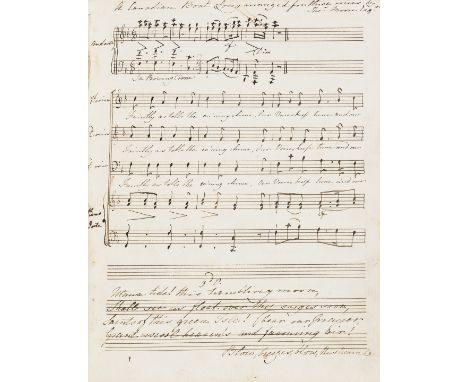 A Canadian Boat Song arranged for three voices
In Rowing time
1st voice
2 voice
3 voice
Faintly as tolls the ev'ning chime, Our Voices keep tune and our
Faintly as tolls the ev'ning chime, Our Voices keep tune and our
Faintly as tolls the ev'ning chime, Our Voices keep tune and our
Piano
Forte
Utawas tide! this trembling moon,
Shall see us float over thy surges soon,
Saint of this green Isle! hear our Prayers,
Grant us cool heavens and favouring air!
Blow, breezes, blow, the stream &c